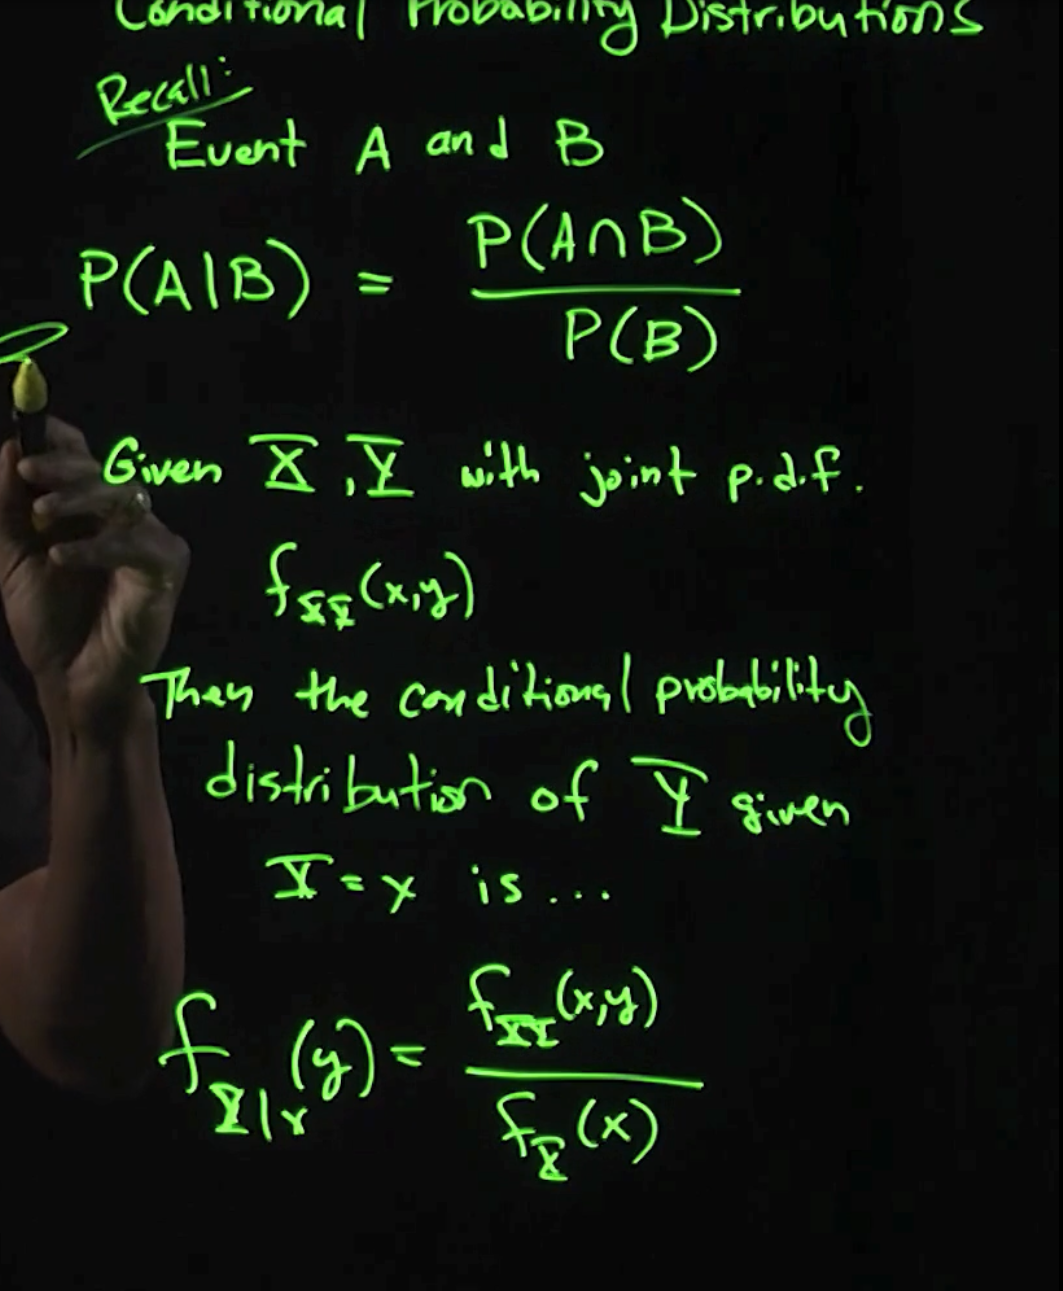 Conditional Probability Distributions
Recall:
Event A and B
P(A|B) = P(A∩B) / P(B)
Given X, Y with joint p.d.f.
f_XY(x,y)
Then the conditional probability
distribution of Y given
X = x is ...
f_Y|x(y) = f_XY(x,y) / f_X(x)